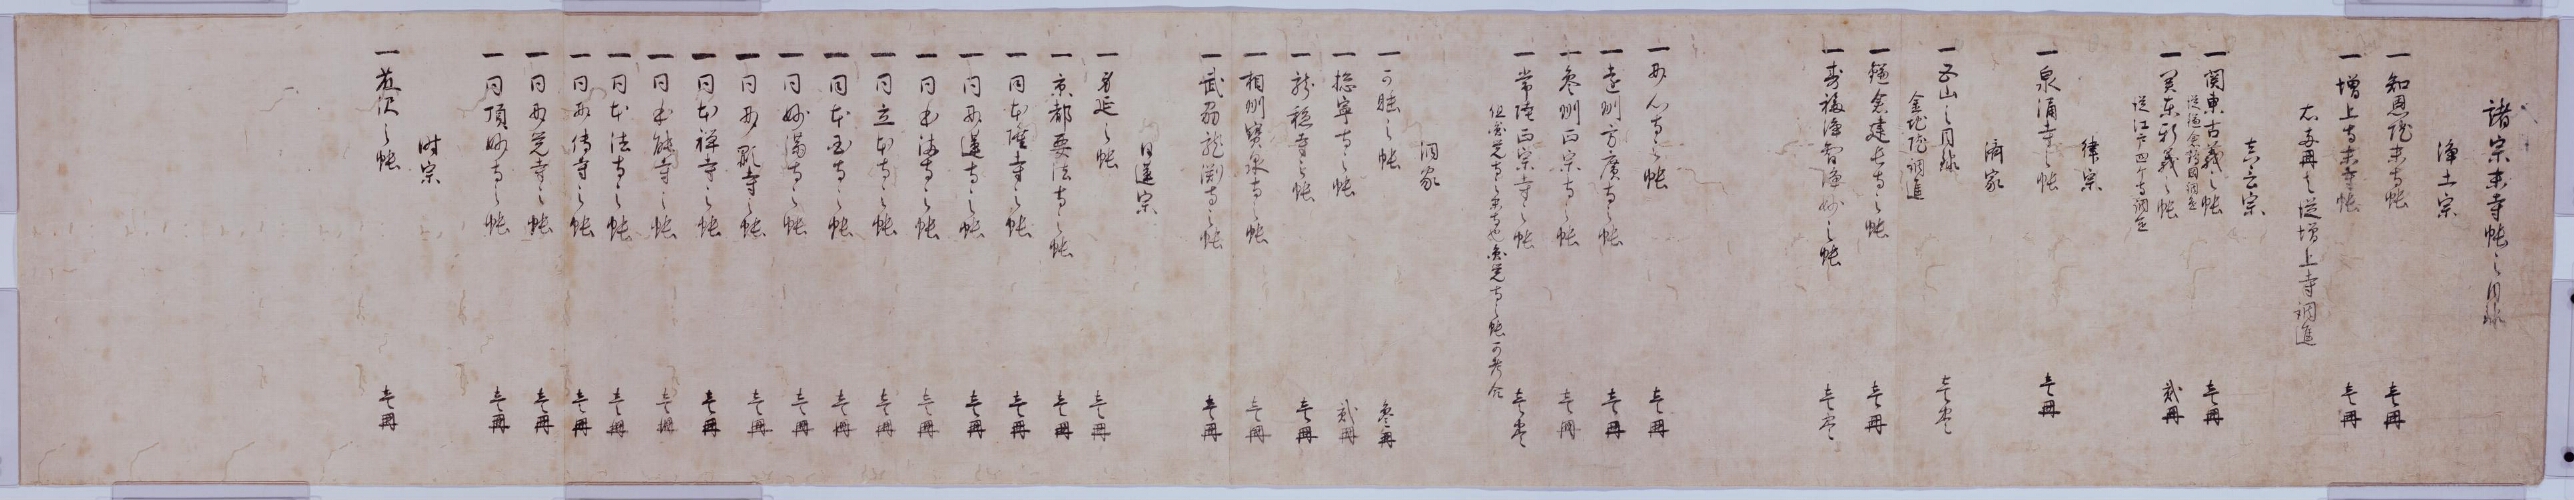 諸宗末寺帳之目録
浄土宗
一知恩院末寺帳 壱冊
一増上寺末寺帳 壱冊
右両冊者従増上寺調進
真言宗
一関東古義之帳 壱冊
一関東新義之帳 弐冊
従江戸四ケ寺調進
律宗
一泉涌寺之帳 壱冊
済家
一五山之目録 壱巻
金地院調進
一鎌倉建長寺之帳 壱冊
一寿福浄智浄妙之帳 壱巻
一妙心寺之帳 壱冊
一遠州方広寺之帳 壱冊
一参州正宗寺之帳 壱冊
一常陸正宗寺之帳 壱巻
洞家
一可睡之帳 参冊
一総寧寺之帳 弐冊
一龍穏寺之帳 壱冊
一相州宝泉寺之帳 壱冊
一武州龍渕寺之帳 壱冊
日蓮宗
一身延之帳 壱冊
一京都要法寺之帳 壱冊
一同本隆寺之帳 壱冊
一同妙蓮寺之帳 壱冊
一同本法寺之帳 壱冊
一同立本寺之帳 壱冊
一同本国寺之帳 壱冊
一同妙満寺之帳 壱冊
一同妙顕寺之帳 壱冊
一同本禅寺之帳 壱冊
一同本能寺之帳 壱冊
一同本法寺之帳 壱冊
一同妙伝寺之帳 壱冊
一同妙覚寺之帳 壱冊
一同頂妙寺之帳 壱冊
時宗
一藤沢之帳 壱冊